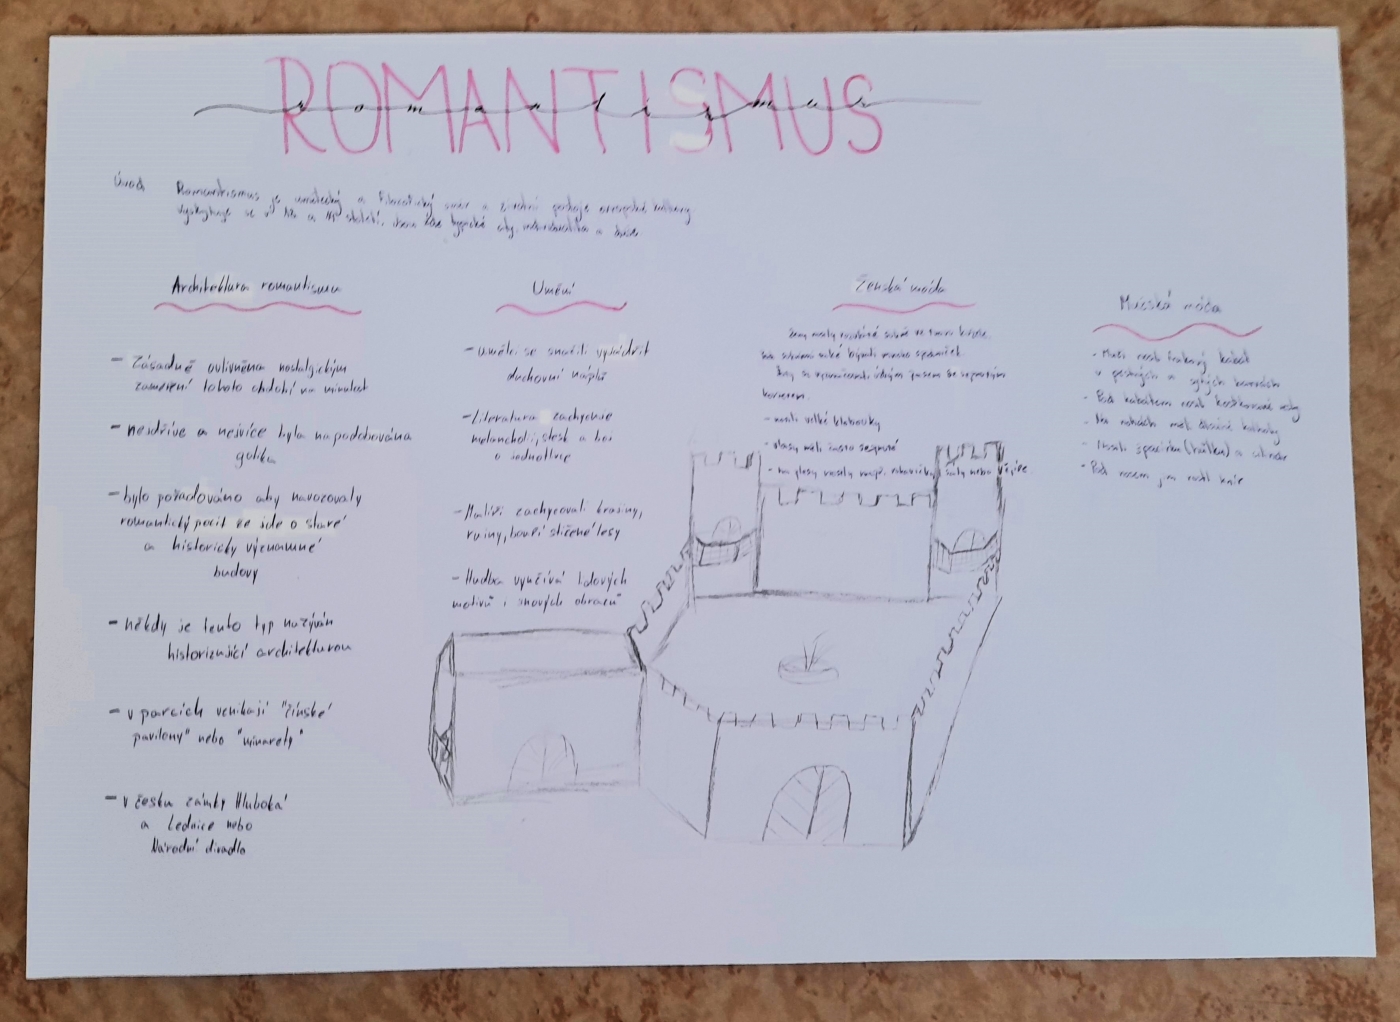 ROMANTISMUS
romantismus
Úvod Romantismus je umělecký a filozofický směr a životní postoje evropské kultury
vyskytuje se v 18. a 19. století. jsou zde typické city, individualita a duše
Architektura romantismu
- Zásadně ovlivněna nostalgickým
zaměření tohoto období na minulost
- nejdříve a nejvíce byla napodobována
gotika
- bylo požadováno aby navozovaly
romantický pocit že jde o staré
a historicky významné
budovy
- někdy je tento typ nazýván
historizující architekturou
- v parcích vznikají "čínské
pavilony" nebo "minarety"
- v česku zámky Hluboká
a Lednice nebo
Národní divadlo
Umění
- umělci se snažili vyjádřit
duchovní náplň
- Literatura zachycuje
melancholii, stesk a boj
o jednotlivce
- Malíři zachycovali krajiny,
ruiny, bouři stižené lesy
- Hudba využívá lidových
motivů i snových obrazů
Ženská móda
Ženy měly rozšířené sukně ve tvaru
sukněmi velké množství spodniček
Ženy se vyznačovali útlým pasem se
korzetem.
- nosili velké kloboučky
- vlasy měli často sepnuté
- na vlasy nosily např. šály nebo
Mužská móda
- Muži nosili frakový kabát
v pestrých a sytých barvách
- Pod kabátem nosili kostkované vesty
- Na nohách měli kalhoty
- Nosili špacírku (hůlku) a cilindr
- Pod nosem jim rostl knír